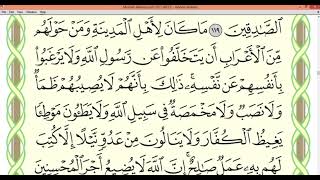 ٱلصَّٰدِقِينَ ١١٩ مَا كَانَ لِأَهْلِ ٱلْمَدِينَةِ وَمَنْ حَوْلَهُم
مِّنَ ٱلْأَعْرَابِ أَن يَتَخَلَّفُوا۟ عَن رَّسُولِ ٱللَّهِ وَلَا يَرْغَبُوا۟
بِأَنفُسِهِمْ عَن نَّفْسِهِۦ ۚ ذَٰلِكَ بِأَنَّهُمْ لَا يُصِيبُهُمْ ظَمَأٌ
وَلَا نَصَبٌ وَلَا مَخْمَصَةٌ فِى سَبِيلِ ٱللَّهِ وَلَا يَطَـُٔونَ مَوْطِئًا
يَغِيظُ ٱلْكُفَّارَ وَلَا يَنَالُونَ مِنْ عَدُوٍّ نَّيْلًا إِلَّا كُتِبَ
لَهُم بِهِۦ عَمَلٌ صَٰلِحٌ ۚ إِنَّ ٱللَّهَ لَا يُضِيعُ أَجْرَ ٱلْمُحْسِنِينَ